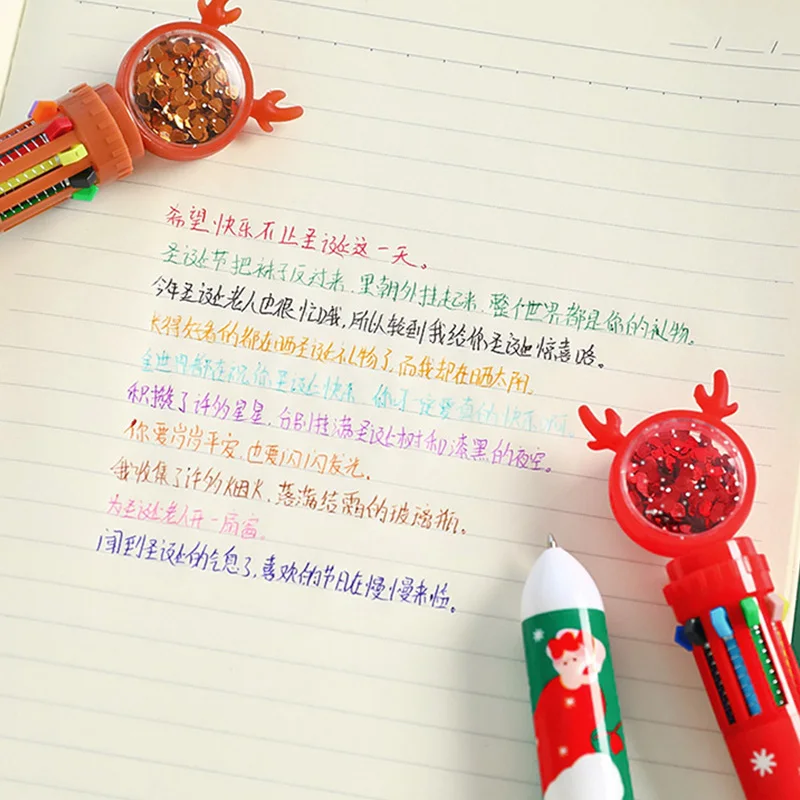 希望快乐不止圣诞这一天。
圣诞节把袜子反过来,里朝外挂起来,整个世界都是你的礼物。
今年圣诞老人也很忙哦,所以轮到我给你圣诞惊喜咯。
长得好看的都在晒圣诞礼物了,而我却在晒太阳。
全世界都在祝你圣诞快乐,你可一定要真的快乐啊。
积攒了许多星星,分别挂满圣诞树和漆黑的夜空。
你要岁岁平安,也要闪闪发光。
我收集了许多烟火,落满结霜的玻璃瓶。
为圣诞老人开一扇窗。
闻到圣诞的气息了,喜欢的节日在慢慢来临。